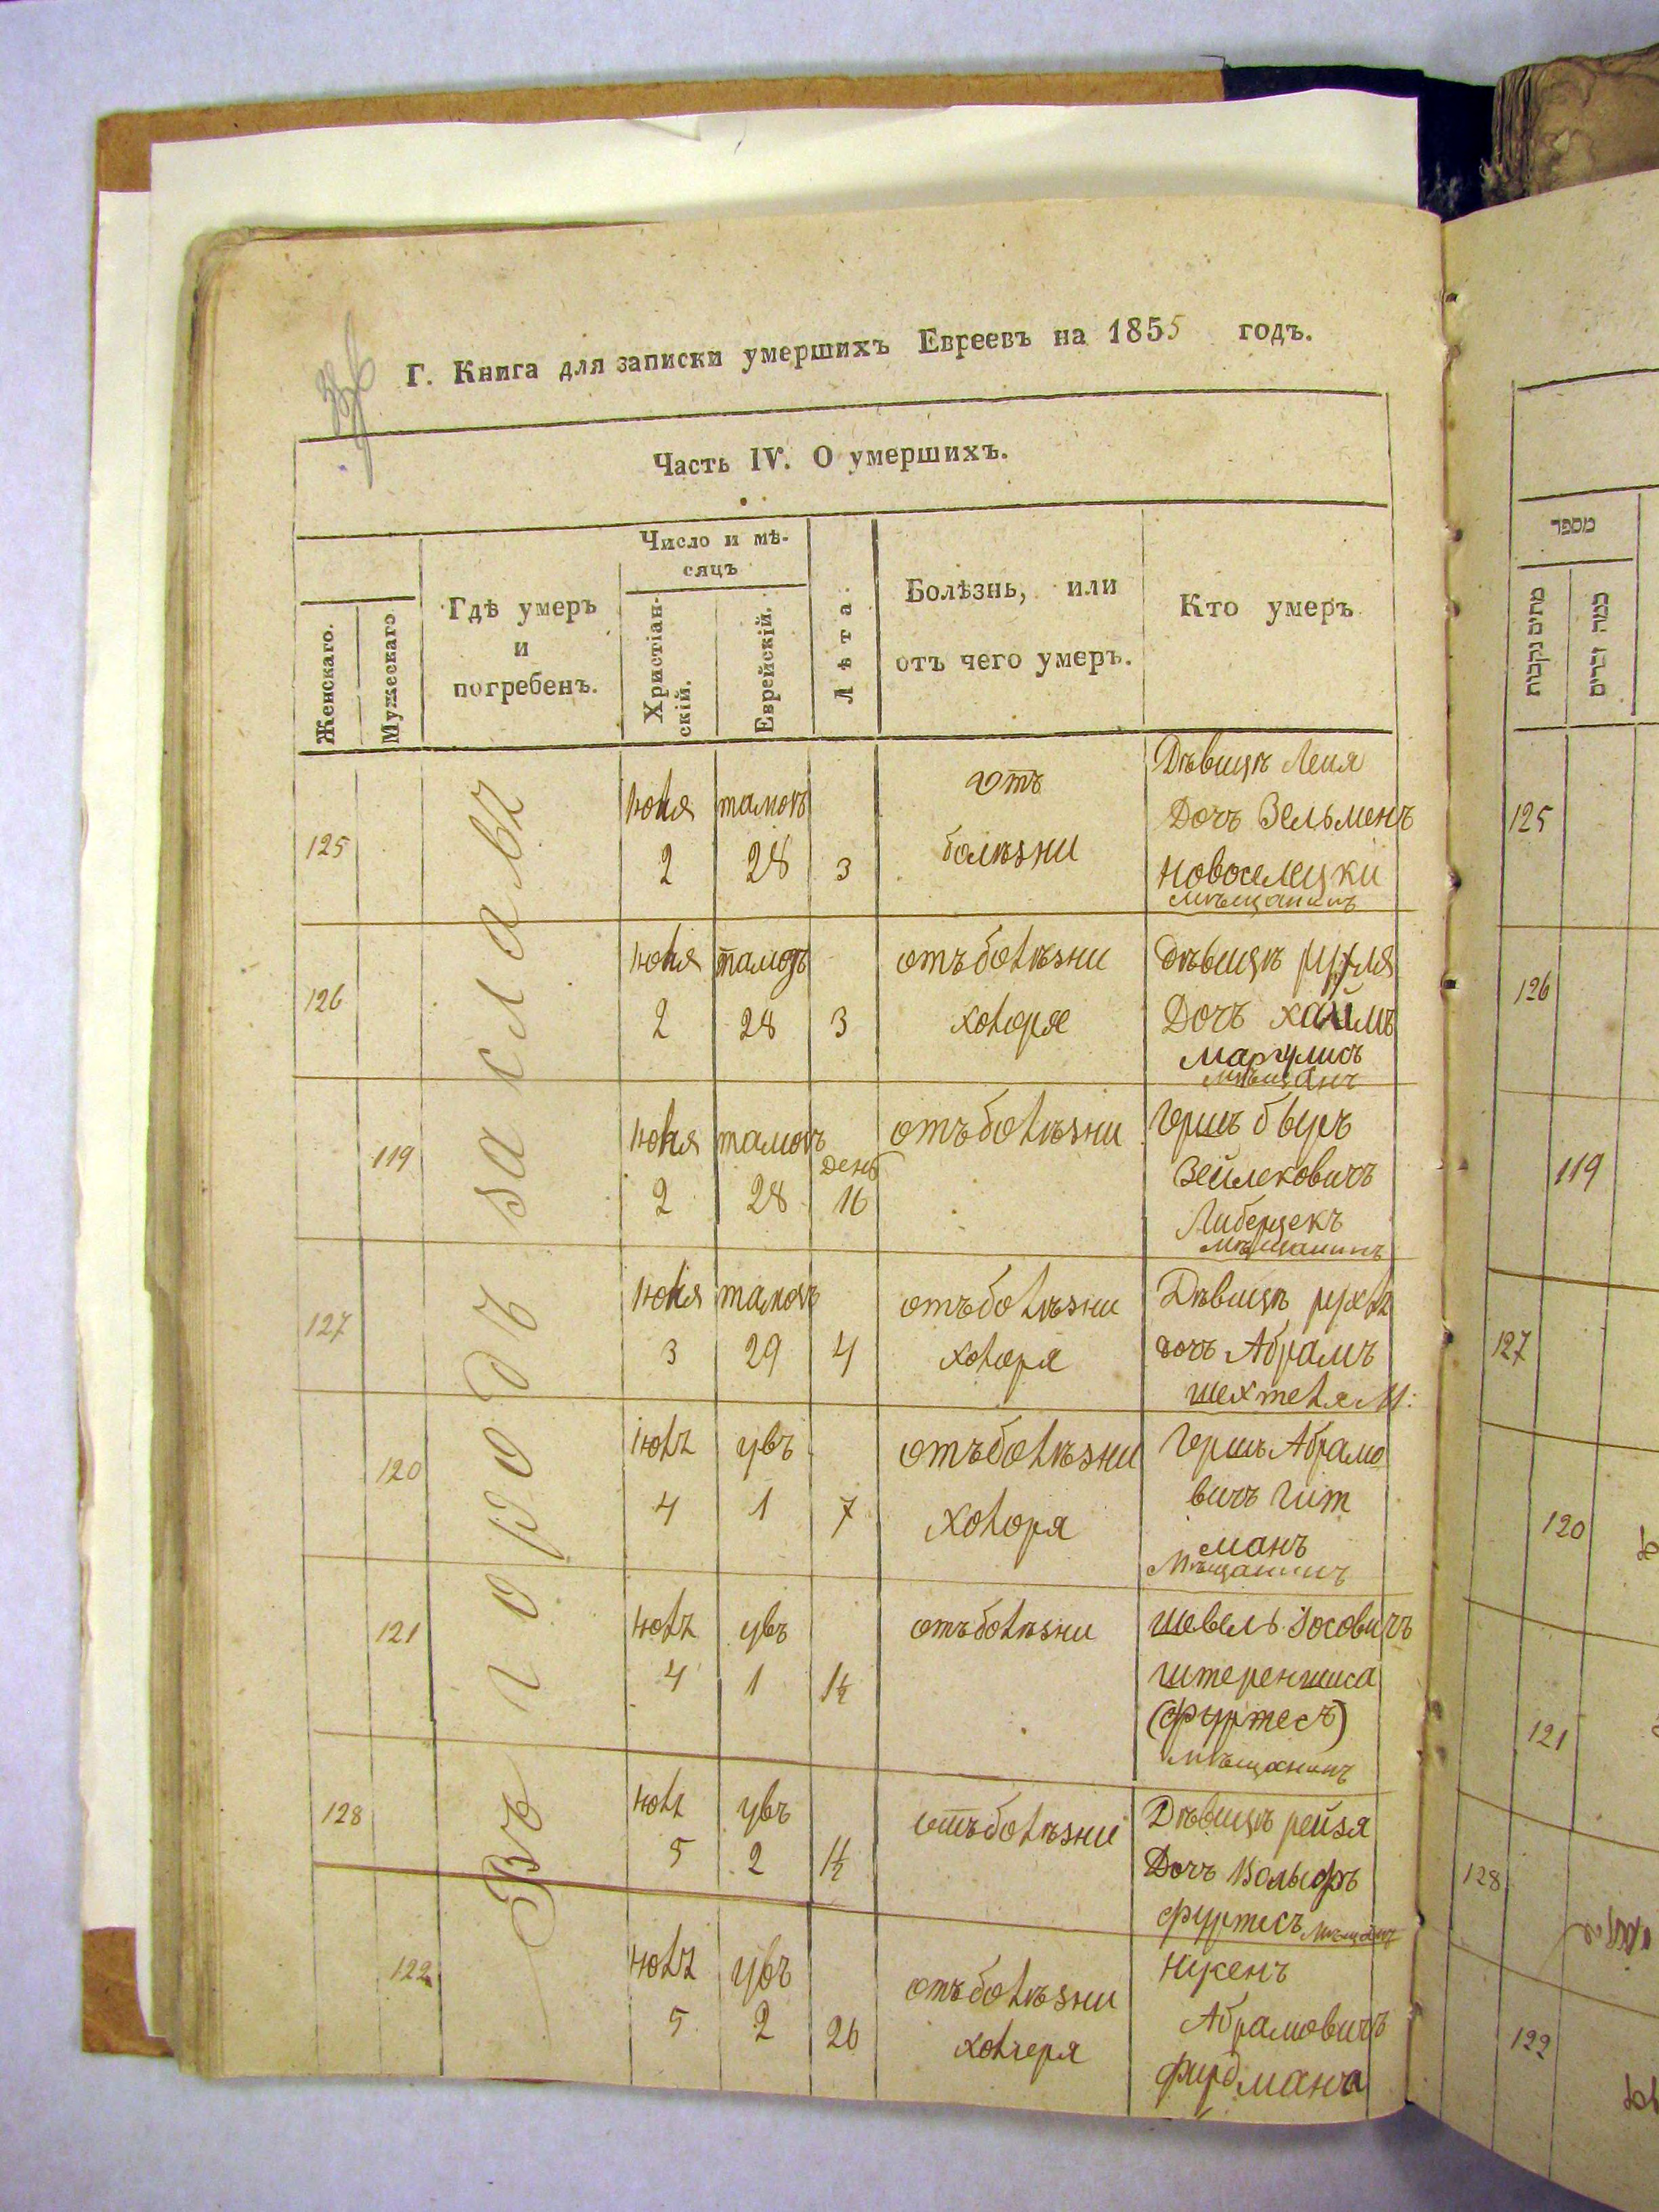 Г. Книга для записки умершихъ Евреевъ на 1855 годъ.
Часть IV. О умершихъ.
Женскаго.
Мужескаго
Гдѣ умеръ
и
погребенъ.
Число и мѣ-
сяцъ
Христіан-
скій.
Еврейскій.
Лѣта
Болѣзнь, или
отъ чего умеръ.
Кто умеръ
Въ городъ заславъ
125
июня
2
тамозъ
28
3
отъ
болѣзни
Дѣвицѣ Леия
Дочъ Зельменъ
Новоселецки
мѣщанинъ
126
июня
2
тамозъ
28
3
отъ болѣзни
холоря
Дѣвицѣ рухля
Дочъ хаимъ
Маргулисъ
119
июня
2
тамозъ
28
день
16
отъ болѣзни
Гершъ беръ
Зейлековичъ
мѣщанинъ
127
июня
3
тамозъ
29
4
отъ болѣзни
холеря
Дѣвицѣ
дочъ Абрамъ
шехтеля М:
120
июлъ
4
увъ
1
7
отъ болѣзни
холоря
Гершъ Абрамо
вичъ Гит
манъ
Мѣщанинъ
121
июлъ
4
увъ
1
1½
отъ болѣзни
шевель Иосовичъ
штереншиса
(фуртесъ)
мѣщанинъ
128
июлъ
5
увъ
2
1½
отъ болѣзни
Дѣвицѣ рейзя
Дочъ Вольфъ
фуртесъ
122
июлъ
5
увъ
2
26
отъ болѣзни
холеря
Нукенъ
Абрамовичъ
מספר
מתים נקבות
כמה זכרים
125
126
119
127
120
121
128
122